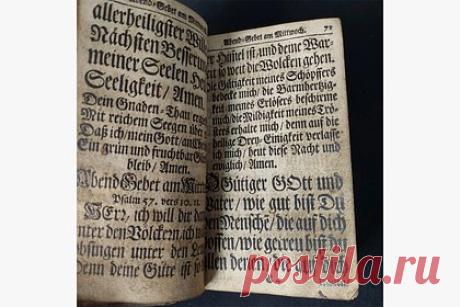 Abend-Gebet am
allerheiligster
Nächsten Besserung
meiner Seelen
Seeligkeit / Amen
Dein Gnaden-Thau
Mit reichem Seegen über
Daß ich / mein Gott / an
Ein grün und fruchtbar
bleib / Amen.
Abend Gebet am
Psalm 57. vers 10. 11.
HErr, ich will dir
unter den Völckern, ich
lobsingen unter den
Denn deine Güte ist
Abend-Gebet am Mittwoch. 73
ist, und deine War-
so weit die Wolcken gehen.
Die Gütigkeit meines Schöpffers
bedecke mich / die Barmhertzig-
keit meines Erlösers beschirme
mich / die Mildigkeit meines Trö-
sters erhalte mich / denn auf die
heilige Drey-Einigkeit verlasse
ich mich / heut diese Nacht und
ewiglich / Amen.
O Gütiger GOtt und
Vater / wie gut bist Du
den Mensche / die auf dich
hoffen / wie getreu bist
allen denen / die
postila.ru